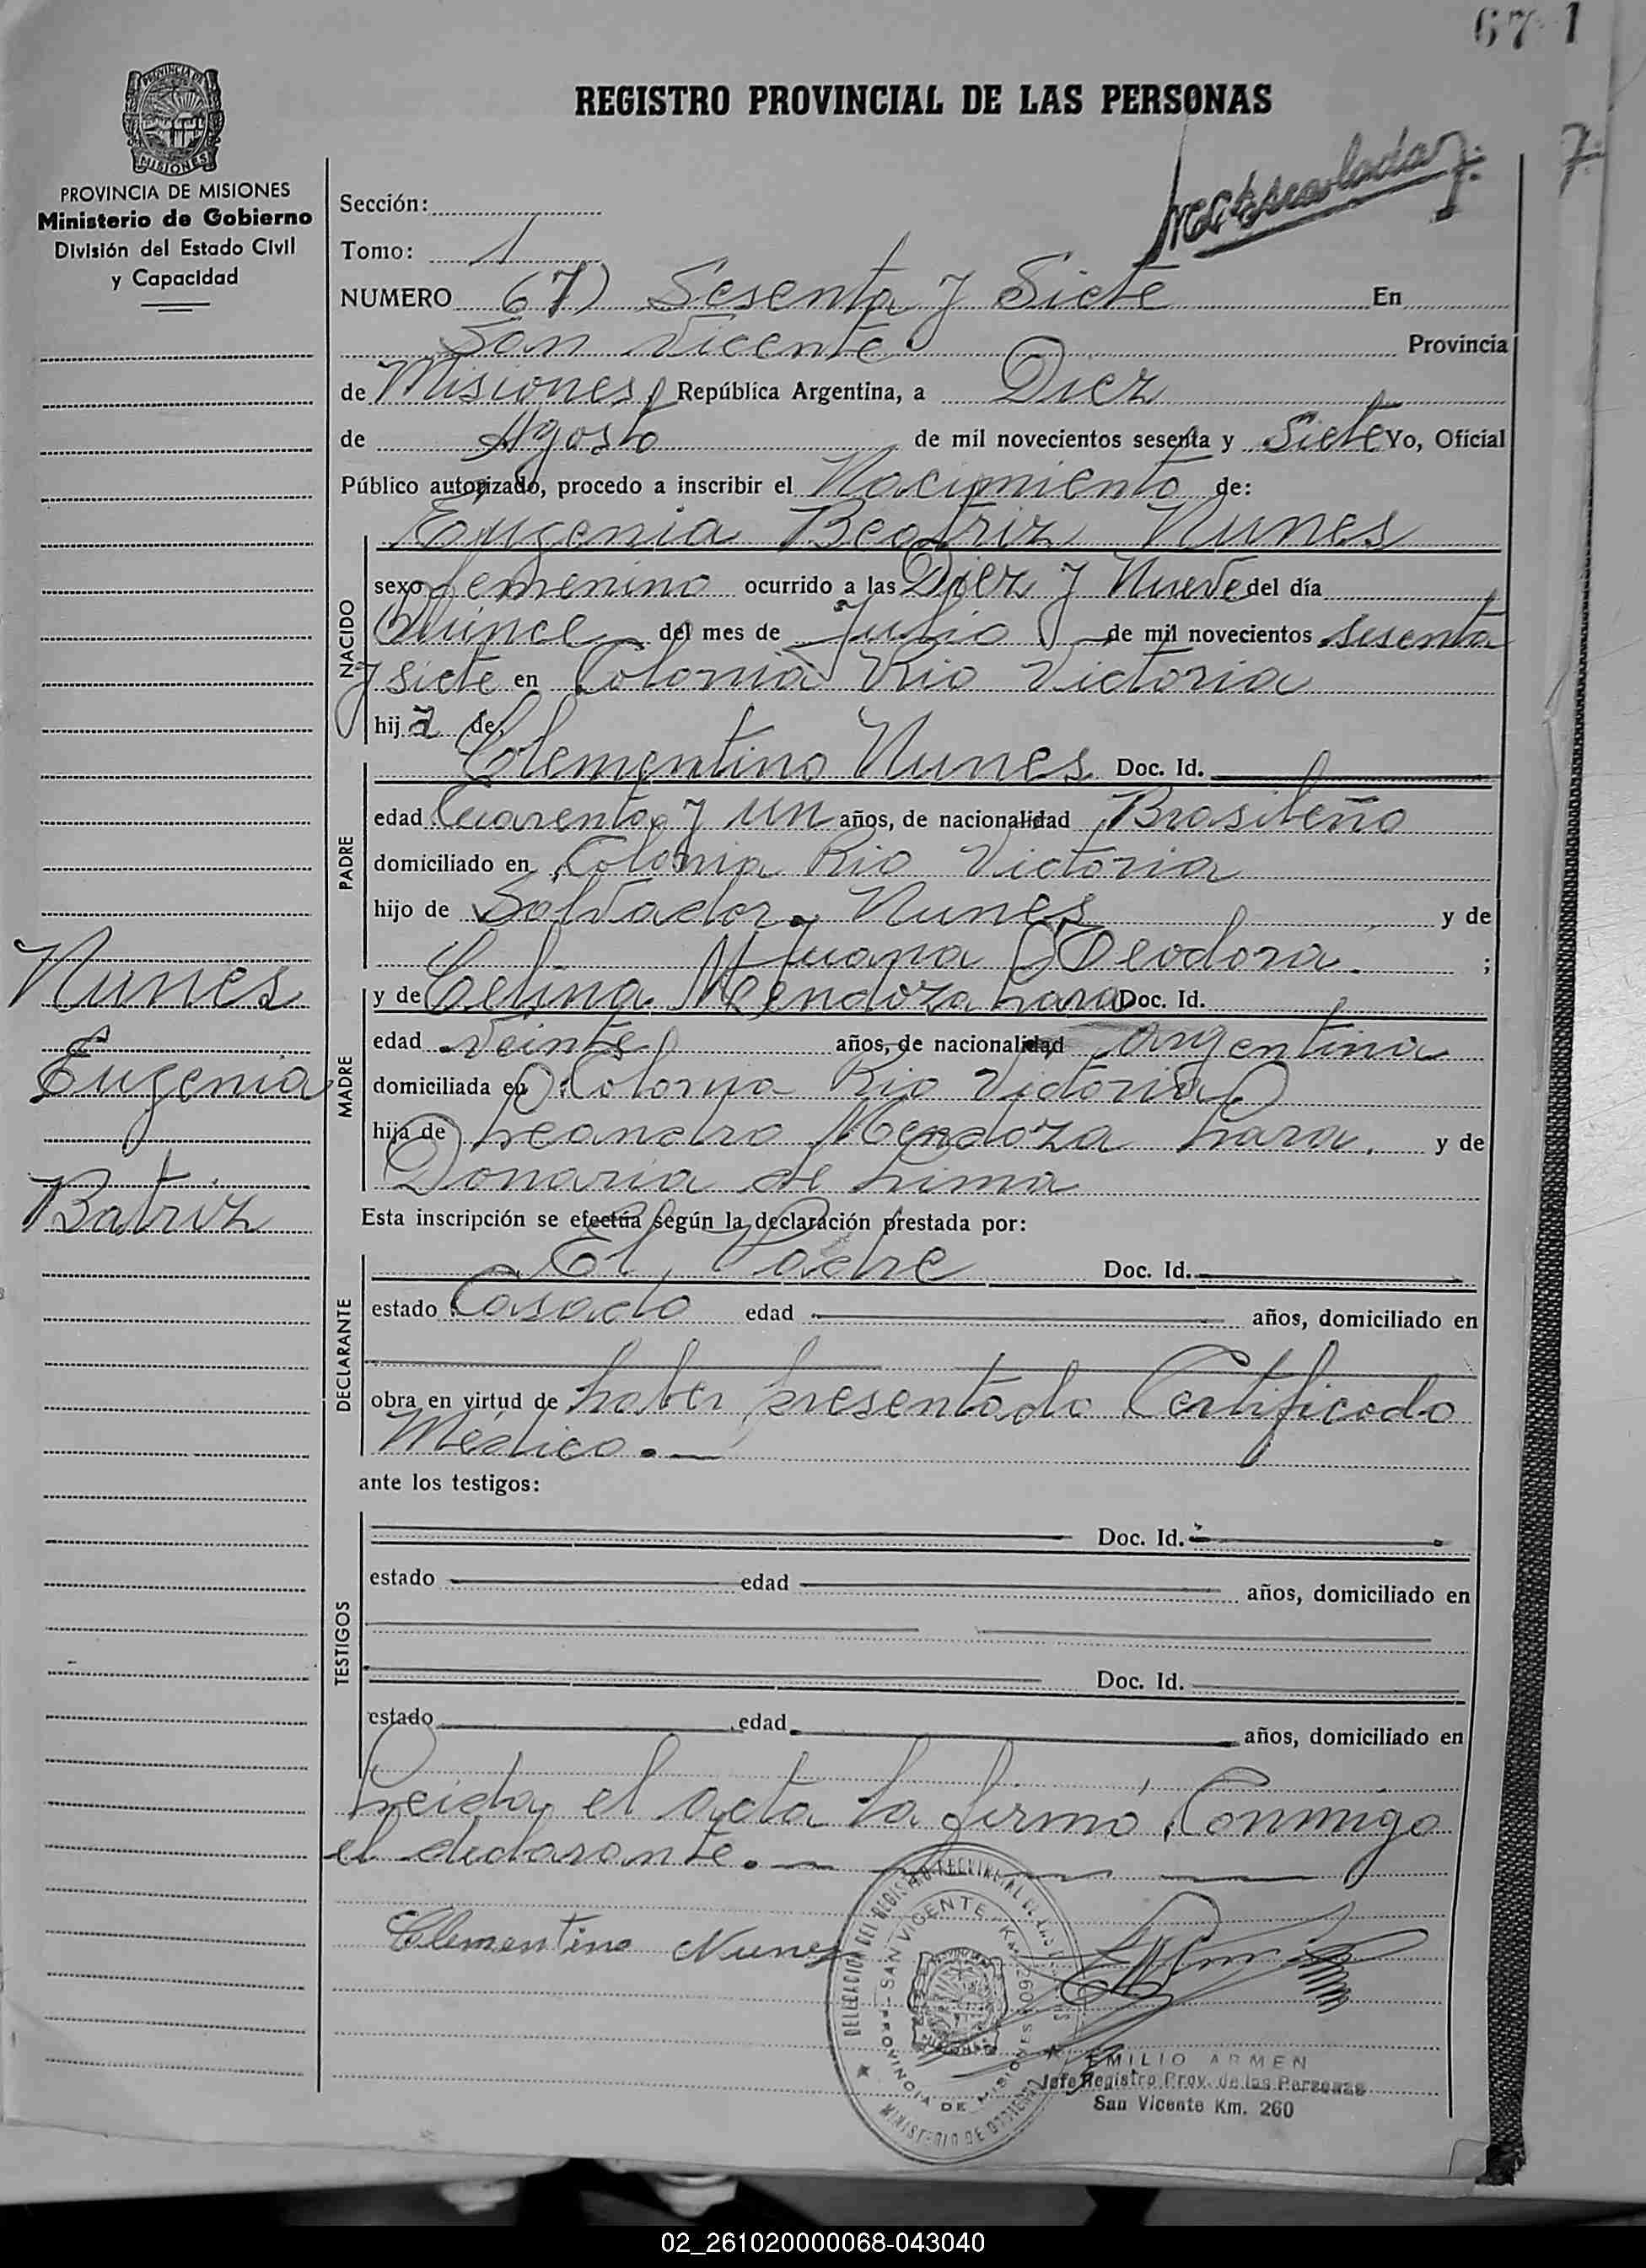 67 1
REGISTRO PROVINCIAL DE LAS PERSONAS
7.
MISIONES
PROVINCIA DE MISIONES
Ministerio de Gobierno
División del Estado Civil
y Capacidad
Sección:
Tomo: 1
NUMERO 67) Sesenta y Siete En
San Vicente Provincia
de Misiones, República Argentina, a Diez
de Agosto de mil novecientos sesenta y Siete Yo, Oficial
Público autorizado, procedo a inscribir el Nacimiento de:
Eugenia Beatriz Nunes
NACIDO
sexo femenino ocurrido a las Diez y Nueve del día
Quince del mes de Julio de mil novecientos sesenta
y siete en Colonia Rio Victoria
hija de
PADRE
Clementino Nunes Doc. Id.
edad Cuarenta y un años, de nacionalidad Brasileño
domiciliado en Colonia Rio Victoria
hijo de Salvador Nunes y de
Juana Deodora ;
Nunes
Eugenia
Batriz
MADRE
y de Celina Mendoza Lara Doc. Id.
edad Veinte años, de nacionalidad argentina
domiciliada en Colonia Rio Victoria
hija de Leandro Mendoza Lara y de
Donaria de Lima
Esta inscripción se efectúa según la declaración prestada por:
DECLARANTE
El Padre Doc. Id.
estado Casado edad años, domiciliado en
obra en virtud de haber presentado Certificado
Médico.
ante los testigos:
TESTIGOS
Doc. Id.
estado edad años, domiciliado en
Doc. Id.
estado edad años, domiciliado en
Leida el acta la firmó Conmigo
el declarante.
Clementino Nunes
DELEGACION DEL REGISTRO PROVINCIAL DE LAS
SAN VICENTE Km. 260
PROVINCIA DE MISIONES
MINISTERIO DE GOBIERNO
EMILIO ARMEN
Jefe Registro Prov. de las Personas
San Vicente Km. 260
02_261020000068-043040